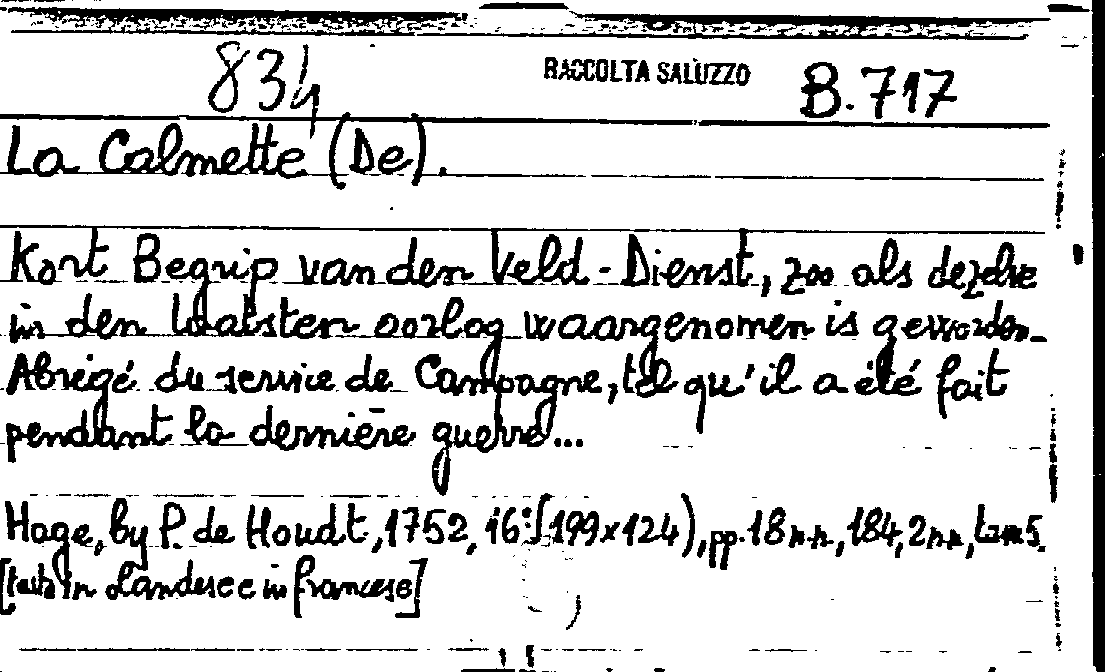 834 RACCOLTA SALUZZO B.717
La Calmette (De).
Kort Begrip van den Veld-Dienst, zoo als dezelve
in den laatsten oorlog waargenomen is geworden.
Abrégé du service de Campagne, tel qu'il a été fait
pendant la dernière guerre...
Hage, by P. de Hondt, 1752, 16° (199x124), pp. 18 n.n., 184, 2 n.n., tav. 5.
[testo in olandese e in francese]